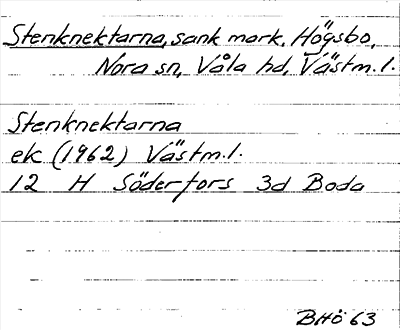 Stenknektarna, sank mark, Högsbo,
Nora sn, Våla hd, Västm. l.
Stenknektarna
ek (1962) Västm. l.
12 H Söderfors 3d Boda
BHö 63